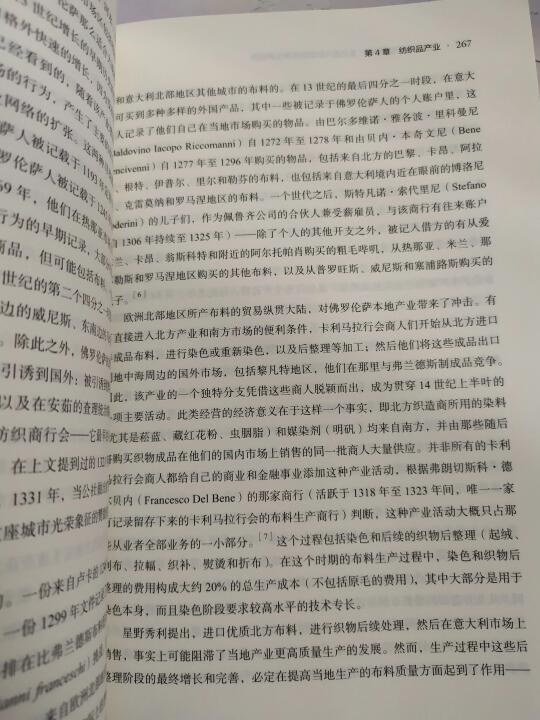 萨那么活
市场区
3 世纪的早
格外快速的增长
已经看到的，随着
场的行为，产生了主要
业网络的扩张。这两种
萨人被记载于1193年
罗伦萨人被记载于124
69 年，他们在热那亚
行为的早期记录，大部
商品，但可能包括布料
世纪的第二个四分之一
边的威尼斯、东南边的
。除此之外，佛罗伦萨
引诱到国外：被引诱
以及在安茹的查理统治
纺织商行会——它最
在上文提到过的132
1331 年，当公社
这座城市光荣象征的
一份来自卢卡的12
一份 1299 年文件记
排在比弗兰德斯布料
ianni franceschi）
来自欧洲北
第 4 章 纺织品产业 · 267
和意大利北部地区其他城市的布料的。在 13 世纪的最后四分之一时段，在意大
可买到多种多样的外国产品，其中一些被记录于佛罗伦萨人的个人账户里，这
人记录了他们自己在当地市场购买的物品。由巴尔多维诺·雅各波·里科曼尼
aldovino Iacopo Riccomanni）自 1272 年至 1278 年和由贝内·本奇文尼（Bene
ncivenni）自 1277 年至 1296 年购买的物品，包括来自北方的巴黎、卡昂、阿拉
、根特、伊普尔、里尔和勒芬的布料，也包括来自意大利境内近在眼前的博洛尼
、克雷莫纳和罗马涅地区的布料。一个世代之后，斯特凡诺·索代里尼（Stefano
derini）的儿子们，作为佩鲁齐公司的合伙人兼受薪雇员，与该商行有往来账户
自 1306 年持续至 1325 年）——除了个人的其他开支之外，被记入借方的有从爱
兰、卡昂、翁斯科特和附近的阿尔托帕肖购买的粗毛哔叽，从热那亚、米兰、那
勒斯和罗马涅地区购买的其他布料，以及从普罗旺斯、威尼斯和塞浦路斯购买的
子。[6]
欧洲北部地区所产布料的贸易纵贯大陆，对佛罗伦萨本地产业带来了冲击。有
直接进入北方产业和南方市场的便利条件，卡利马拉行会商人们开始从北方进口
成品布料，进行染色或重新染色，以及后整理等加工；然后他们将这些成品出口
地中海周边的国外市场，包括黎凡特地区，他们在那里与弗兰德斯制成品竞争。
此，该产业的一个独特分支凭借这些商人脱颖而出，成为贯穿 14 世纪上半叶的
项主要活动。此类经营的经济意义在于这样一个事实，即北方织造商所用的染料
尤其是菘蓝、藏红花粉、虫胭脂）和媒染剂（明矾）均来自南方，并由那些随后
购买织物成品在他们的国内市场上销售的同一批商人大量供应。并非所有的卡利
马拉行会商人都给自己的商业和金融事业添加这种产业活动，根据弗朗切斯科·德
尔贝内（Francesco Del Bene）的那家商行（活跃于 1318 年至 1323 年间，唯一一家
有记录留存下来的卡利马拉行会的布料生产商行）判断，这种产业活动大概只占那
些从业者全部业务的一小部分。[7] 这个过程包括染色和后续的织物后整理（起绒、
剪布、拉幅、织补、熨烫和折布）。在这个时期的布料生产过程中，染色和织物后
整理的费用构成大约 20% 的总生产成本（不包括原毛的费用），其中大部分是用于
染色本身，而且染色阶段要求较高水平的技术专长。
星野秀利提出，进口优质北方布料，进行织物后续处理，然后在意大利市场上
销售，事实上可能阻滞了当地产业更高质量生产的发展。然而，生产过程中这些后
整理阶段的最终增长和完善，必定在提高当地生产的布料质量方面起到了作用——